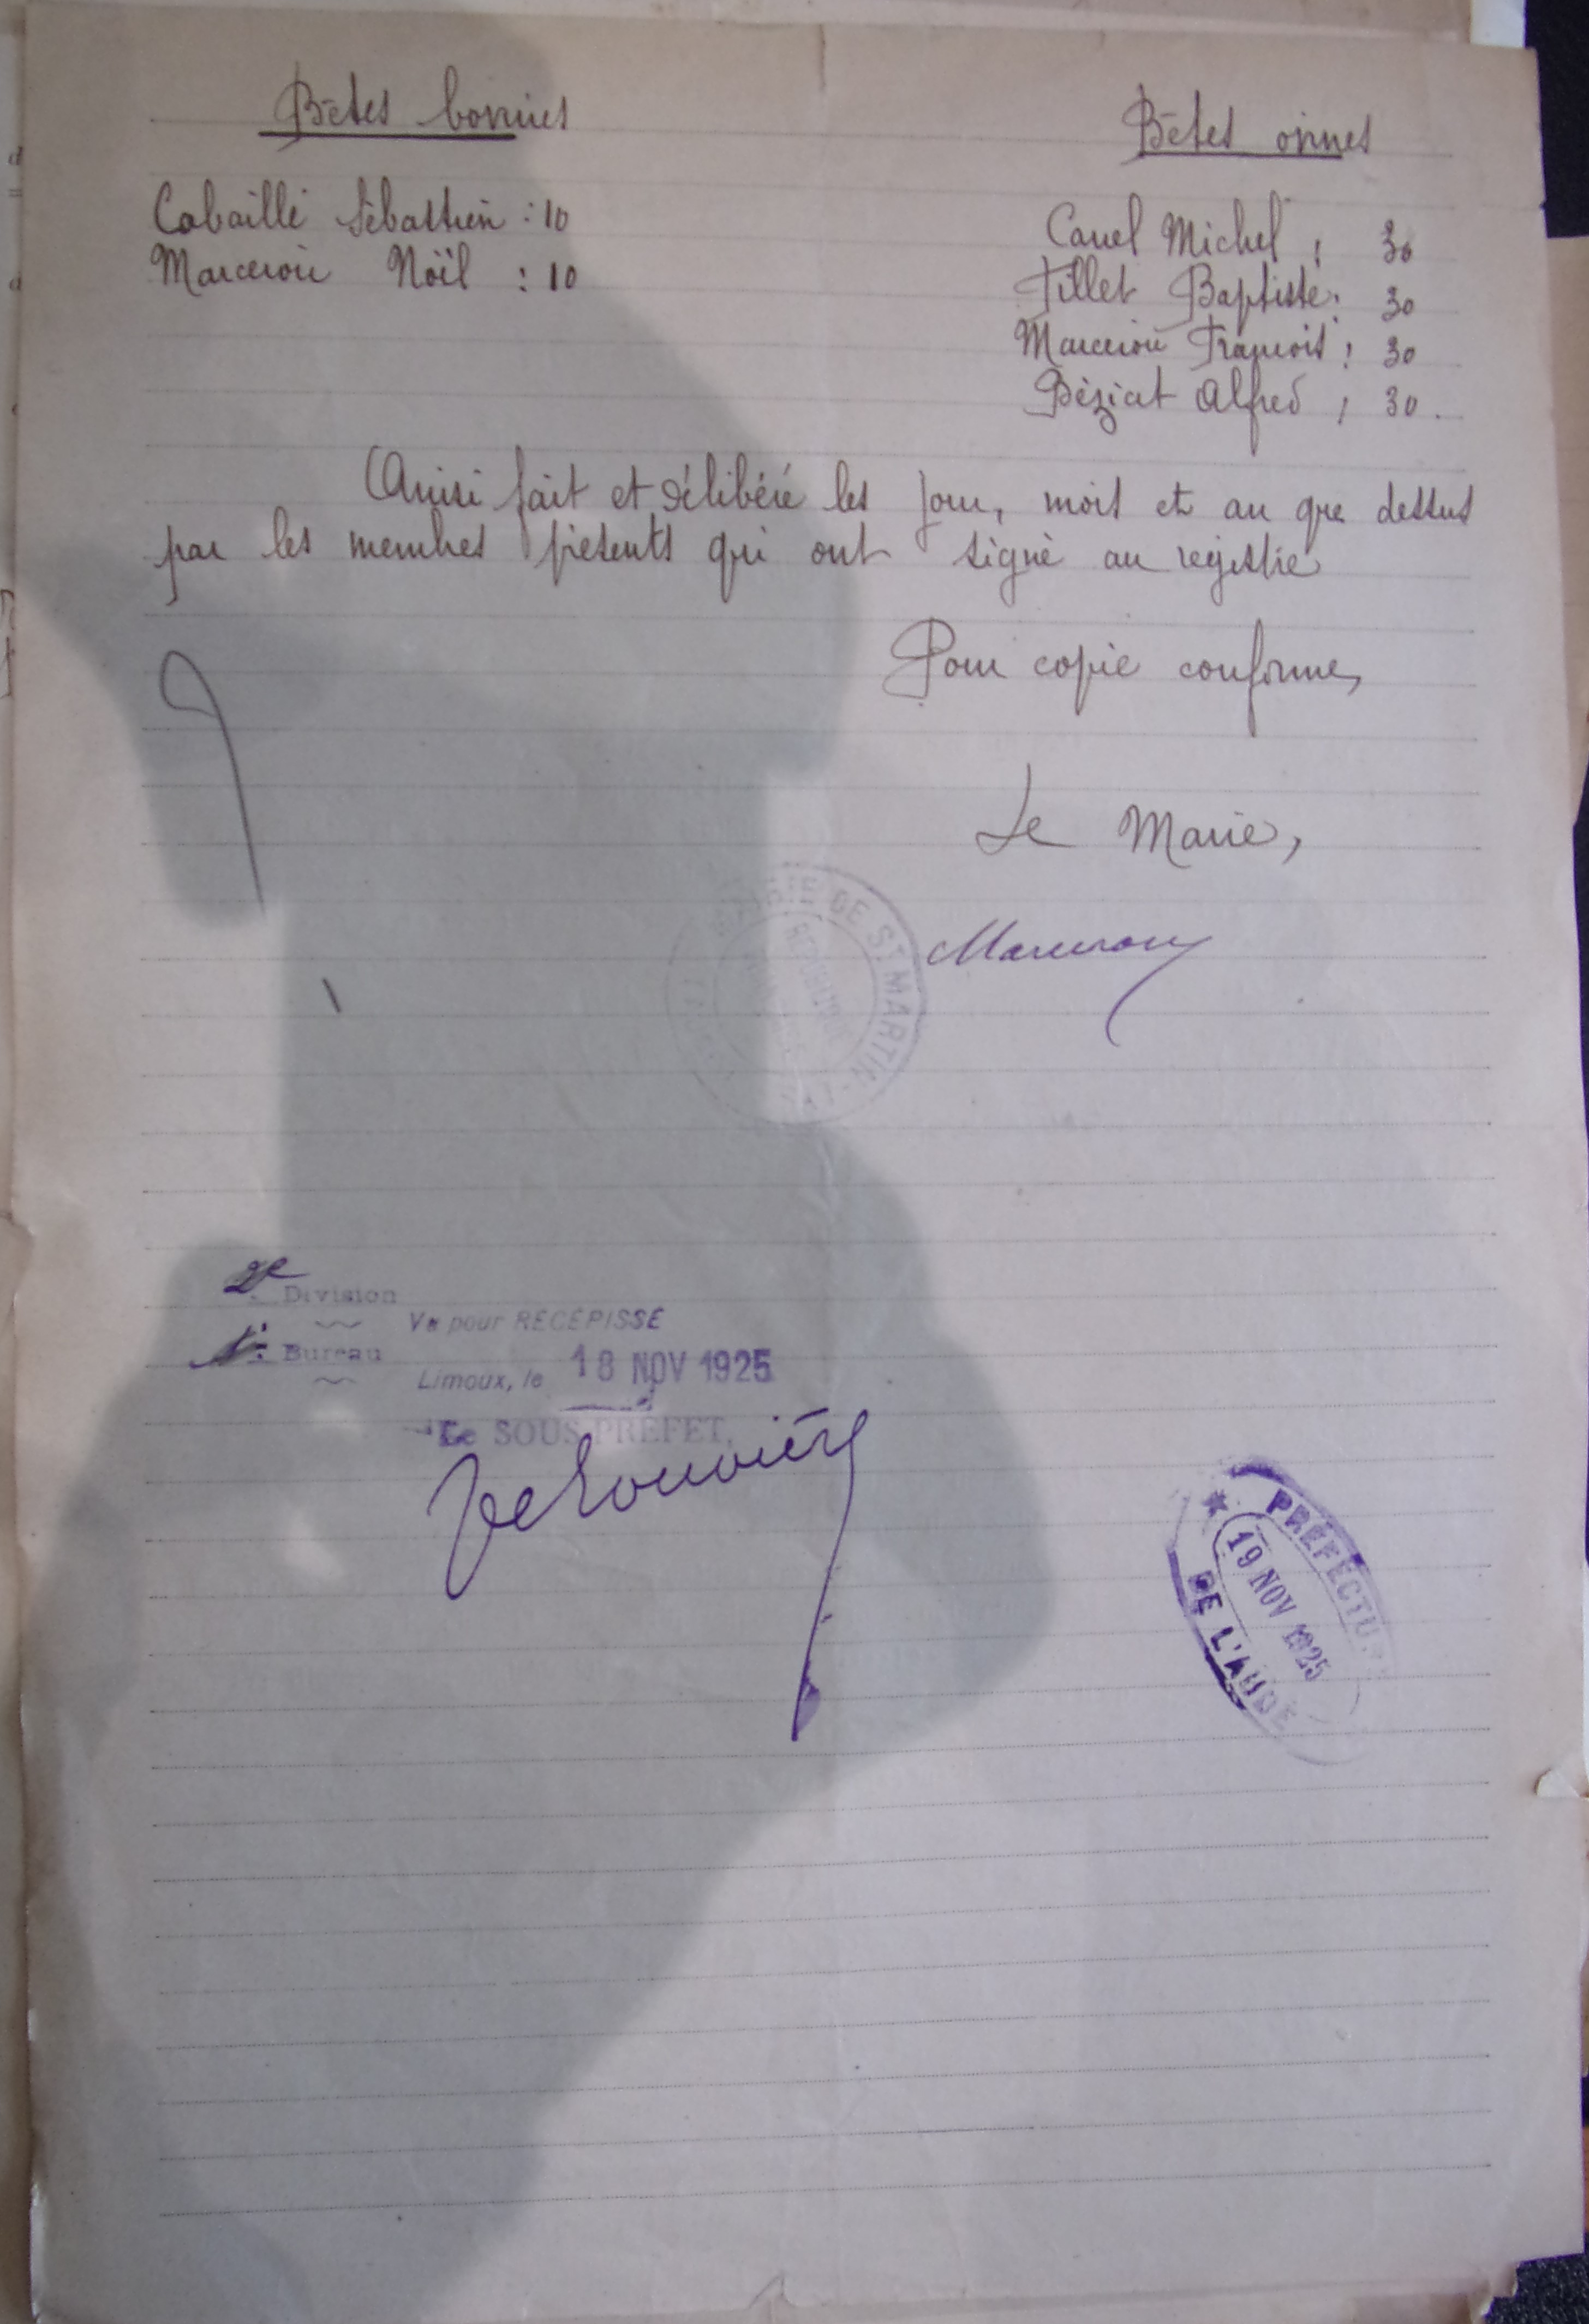 Bêtes bovines
Cabaillé Sébastien : 10
Marcerou Noël : 10
Bêtes ovines
Canel Michel : 30
Tillet Baptiste : 30
Marcerou François : 30
Béziat Alfred : 30.
Ainsi fait et délibéré les jour, mois et an que dessus
par les membres présents qui ont signé au registre
Pour copie conforme,
Le Maire,
Marcerou
MAIRIE DE ST MARTIN-
2e Division
1er Bureau
Vu pour RÉCÉPISSÉ
Limoux, le 18 NOV 1925
Le SOUS-PRÉFET,
PRÉFECTURE
19 NOV 1925
DE L'AUDE